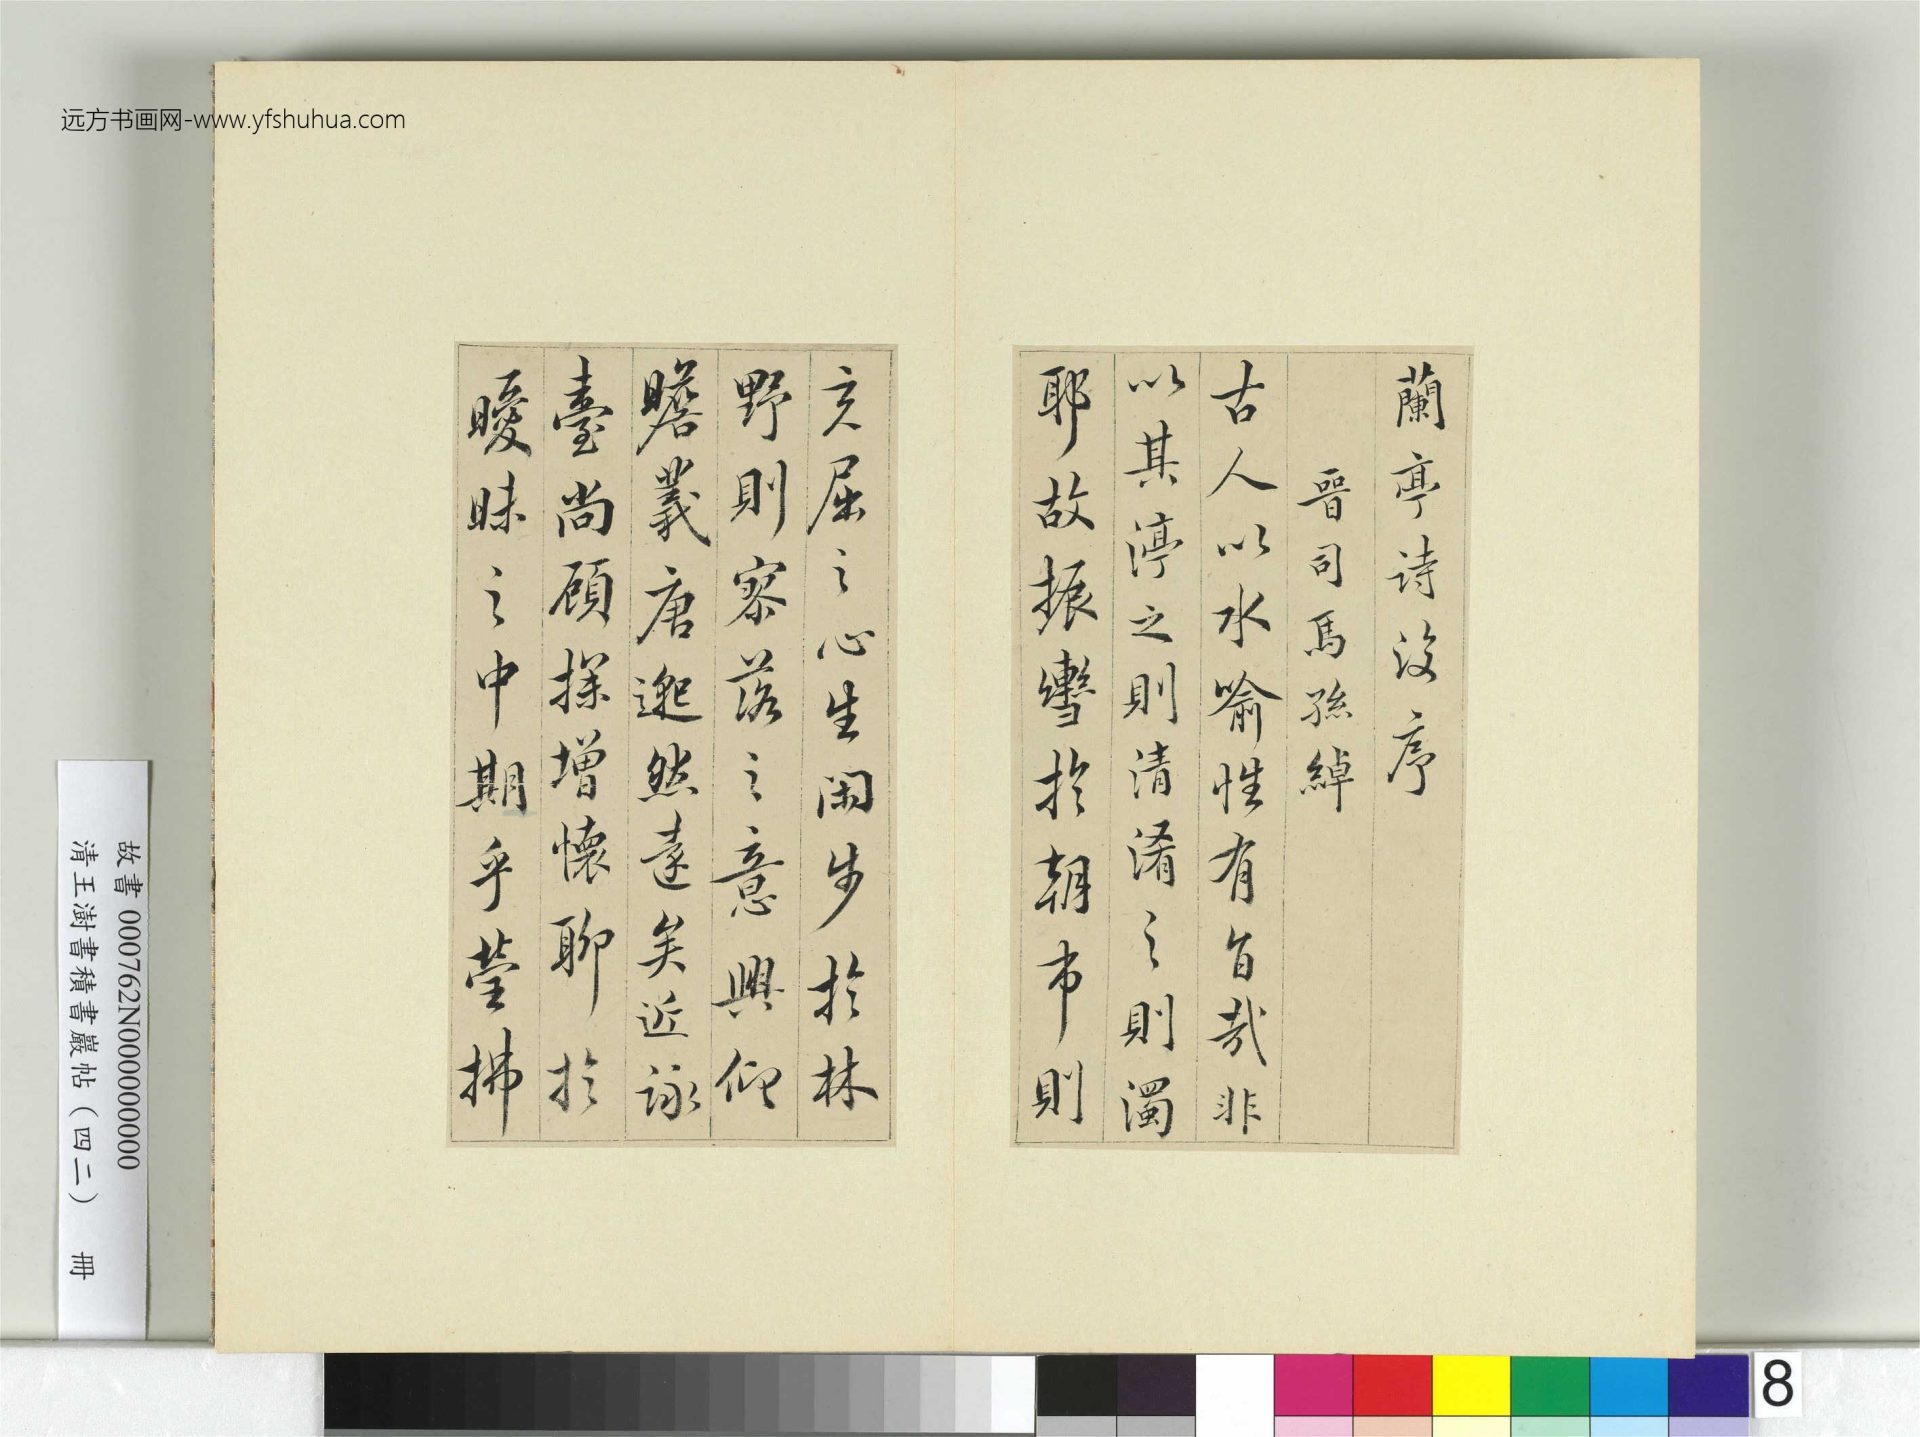 蘭亭詩後序
晉司馬孫綽
古人以水喻性有旨哉非
以其渟之則清淆之則濁
耶故振轡於朝市則
充屈之心生閑步於林
野則寥落之意興仰
瞻羲唐邈然遠矣近詠
臺尚顧探增懷聊於
曖昧之中期乎瑩拂
远方书画网-www.yfshuhua.com
故書 000762N000000000
清王澍書積書巖帖(四二) 冊
8